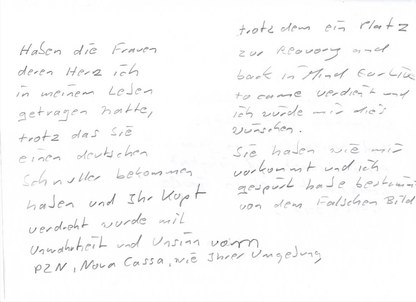 Haben die Frauen
deren Herz ich
in meinem Leben
getragen hatte,
trotz das Sie
einen deutschen
Schnuller bekommen
haben und Ihr Kopf
verdreht wurde mit
Unwahrheit und Unsinn vom
PZN, Nova Cassa, wie Ihrer Umgebung
trotz dem ein Platz
zur Recovery and
back in Mind
to came verdient und
ich würde mir dies
wünschen.
Sie haben wie mir
vorkommt und ich
gespürt habe
von dem Falschen Bild